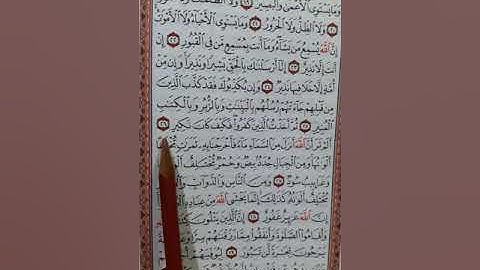 وَمَا يَسْتَوِي ٱلْأَعْمَىٰ وَٱلْبَصِيرُ ١٩ وَلَا ٱلظُّلُمَٰتُ وَلَا
٢٠ وَلَا ٱلظِّلُّ وَلَا ٱلْحَرُورُ ٢١ وَمَا يَسْتَوِي ٱلْأَحْيَآءُ وَلَا ٱلْأَمْوَٰتُ
إِنَّ ٱللَّهَ يُسْمِعُ مَن يَشَآءُ وَمَآ أَنتَ بِمُسْمِعٍ مَّن فِي ٱلْقُبُورِ ٢٢ إِنْ
أَنتَ إِلَّا نَذِيرٌ ٢٣ إِنَّآ أَرْسَلْنَٰكَ بِٱلْحَقِّ بَشِيرًا وَنَذِيرًا وَإِن مِّنْ
أُمَّةٍ إِلَّا خَلَا فِيهَا نَذِيرٌ ٢٤ وَإِن يُكَذِّبُوكَ فَقَدْ كَذَّبَ ٱلَّذِينَ
مِن قَبْلِهِمْ جَآءَتْهُمْ رُسُلُهُم بِٱلْبَيِّنَٰتِ وَبِٱلزُّبُرِ وَبِٱلْكِتَٰبِ
ٱلْمُنِيرِ ٢٥ ثُمَّ أَخَذْتُ ٱلَّذِينَ كَفَرُوا۟ فَكَيْفَ كَانَ نَكِيرِ ٢٦
أَلَمْ تَرَ أَنَّ ٱللَّهَ أَنزَلَ مِنَ ٱلسَّمَآءِ مَآءً فَأَخْرَجْنَا بِهِۦ ثَمَرَٰتٍ
أَلْوَٰنُهَا وَمِنَ ٱلْجِبَالِ جُدَدٌۢ بِيضٌ وَحُمْرٌ مُّخْتَلِفٌ
وَغَرَابِيبُ سُودٌ ٢٧ وَمِنَ ٱلنَّاسِ وَٱلدَّوَآبِّ
مُخْتَلِفٌ أَلْوَٰنُهُۥ كَذَٰلِكَ إِنَّمَا يَخْشَى ٱللَّهَ مِنْ عِبَادِهِ
إِنَّ ٱللَّهَ عَزِيزٌ غَفُورٌ ٢٨ إِنَّ ٱلَّذِينَ يَتْلُونَ
وَأَقَامُوا۟ ٱلصَّلَوٰةَ وَأَنفَقُوا۟ مِمَّا رَزَقْنَٰهُمْ سِرًّا
يَرْجُونَ تِجَٰرَةً لَّن تَبُورَ ٢٩ لِيُوَفِّيَهُمْ